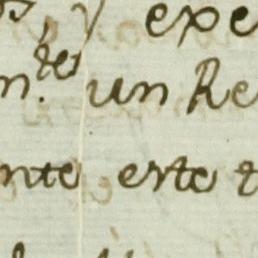 y exe
n.tes un Re
nte este t